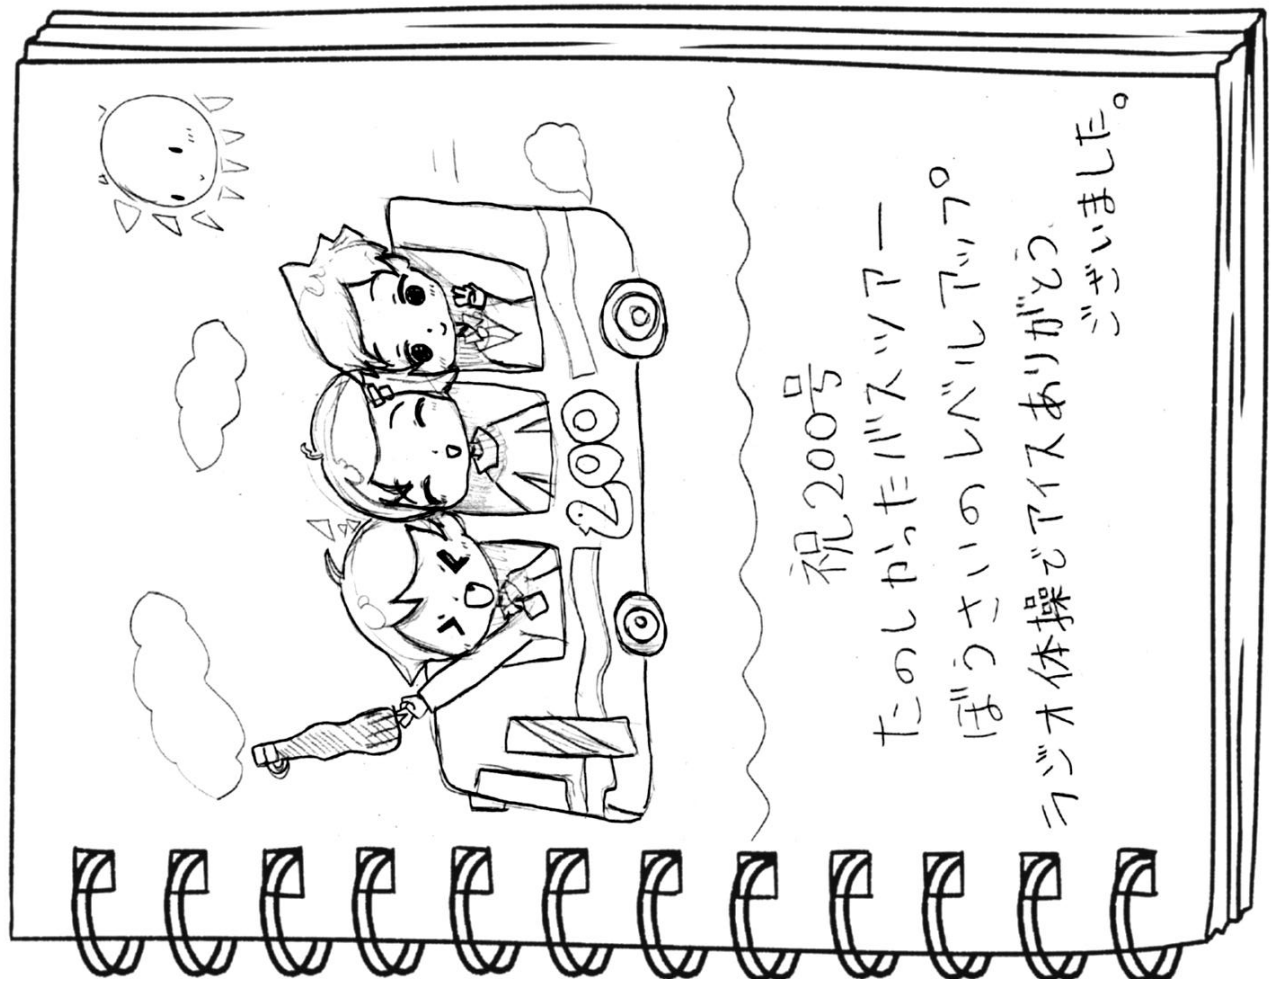 200
祝200号
たのしかったバスツアー
ぼうさいのレベルアップ
ラジオ体操でアイスありがとう
ございました。